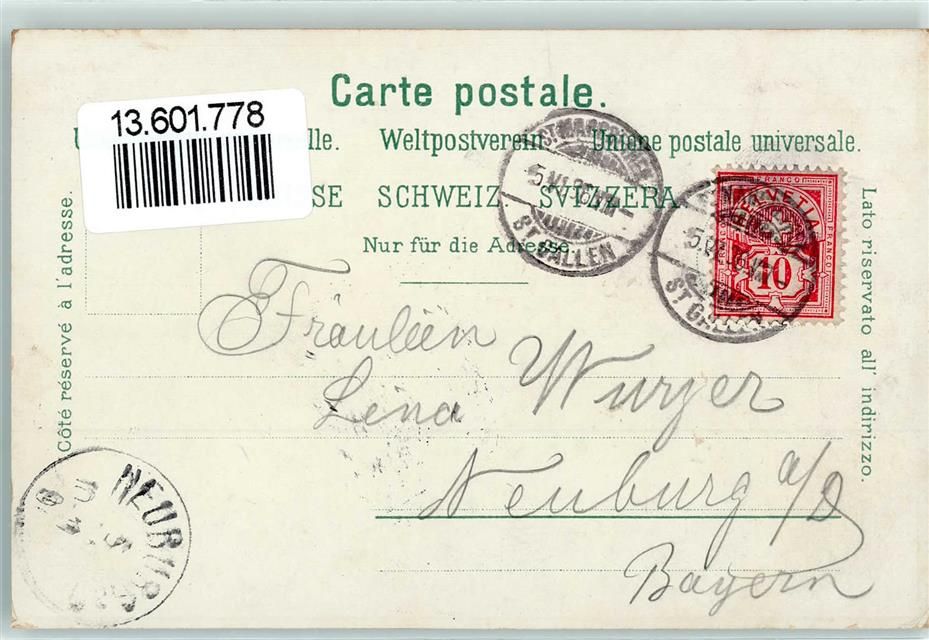 Carte postale.
13.601.778
lle. Weltpostverein. Unione postale universale.
SE SCHWEIZ. SVIZZERA.
Nur für die Adresse.
Côté réservé à l'adresse.
Lato riservato all' indirizzo.
ST. GALLEN
ST. GALLEN
FRANCO
HELVETIA
FRANCO
10
Fräulein
Lina Wurzer
Neuburg a/D
Bayern
NEUBURG